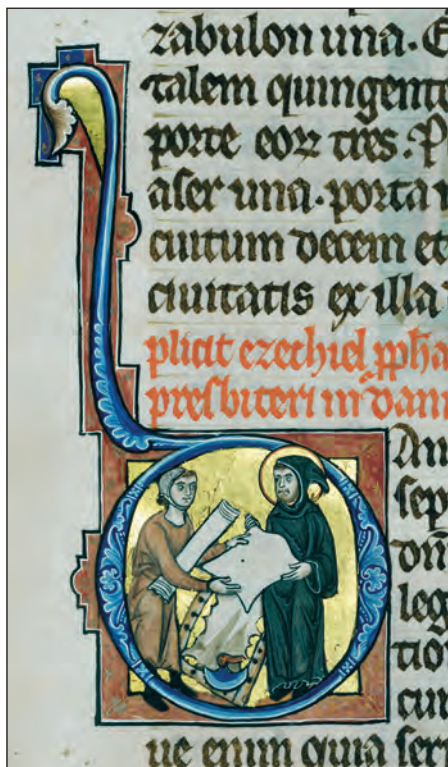 zabulon una. E
talem quingent
porte eorꝝ tres. P
aser una. porta
cuitum decem et
ciuitatis ex illa
plicit ezechiel ppha
presbiteri in dani
D An
sep
dm̄
leg
tio
cur
ue enim quia ser